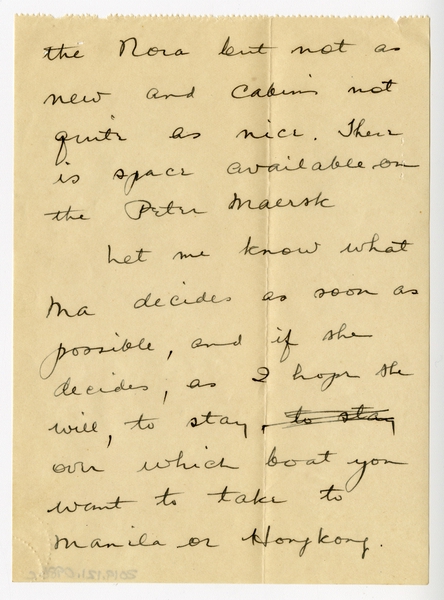 the Nora but not as
new and cabins not
quite as nice. There
is space available on
the Peter Maersk
Let me know what
Ma decides as soon as
possible, and if she
decides, as I hope she
will, to stay, to stay
over which boat you
want to take to
Manila or Hongkong.